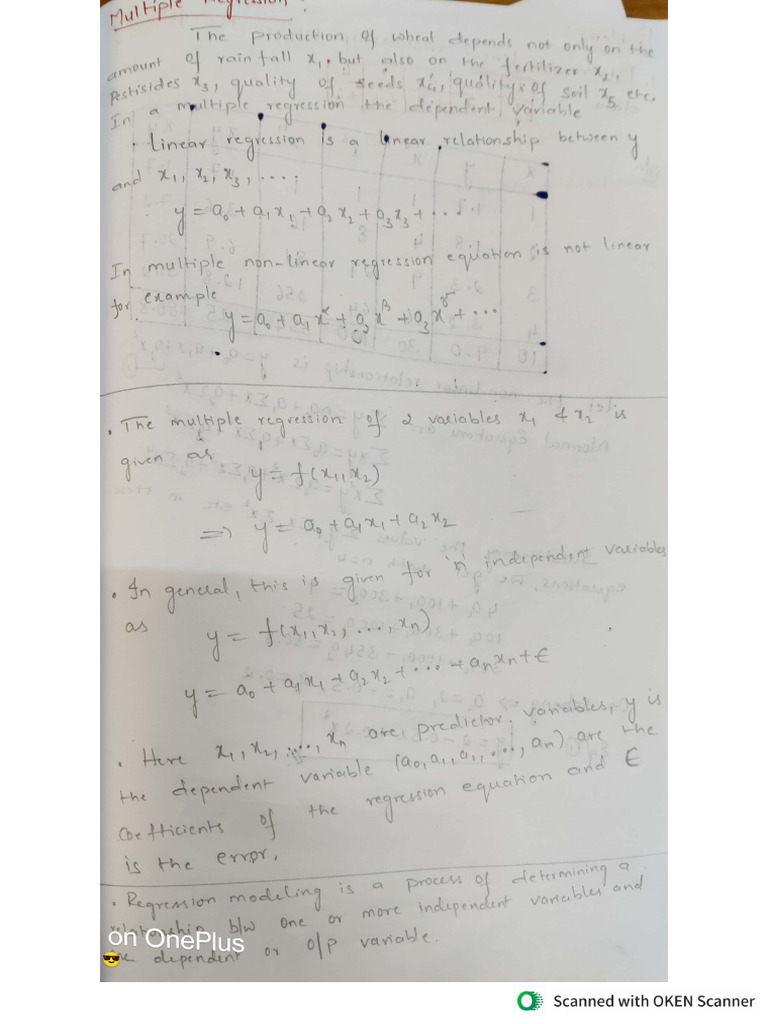 Multiple Regression :
The production of wheat depends not only on the
amount of rainfall x₁, but also on the fertilizer x₂,
Pestisides x₃, quality of seeds x₄, quality of soil x₅ etc.
In a multiple regression the dependent variable
. linear regression is a linear relationship between y
and x₁, x₂, x₃, ....,
y = a₀ + a₁x₁ + a₂x₂ + a₃x₃ + ...
In multiple non-linear regression equation is not linear
for example
y = a₀ + a₁x^α + a₂x^β + a₃x^γ + ...
. The multiple regression of 2 variables x₁ & x₂ is
given as
y = f(x₁, x₂)
⇒ y = a₀ + a₁x₁ + a₂x₂
. In general, this is given for 'n' independent variables
as
y = f(x₁, x₂, ..., xn)
y = a₀ + a₁x₁ + a₂x₂ + ... + anxn + ε
. Here x₁, x₂, ...., xn are predictor variables, y is
the dependent variable (a₀, a₁, a₂, ..., an) are the
Coefficients of the regression equation and ε
is the error.
. Regression modeling is a process of determining a
relationship b/w one or more independent variables and
dependent or o/p variable.
on OnePlus
Scanned with OKEN Scanner